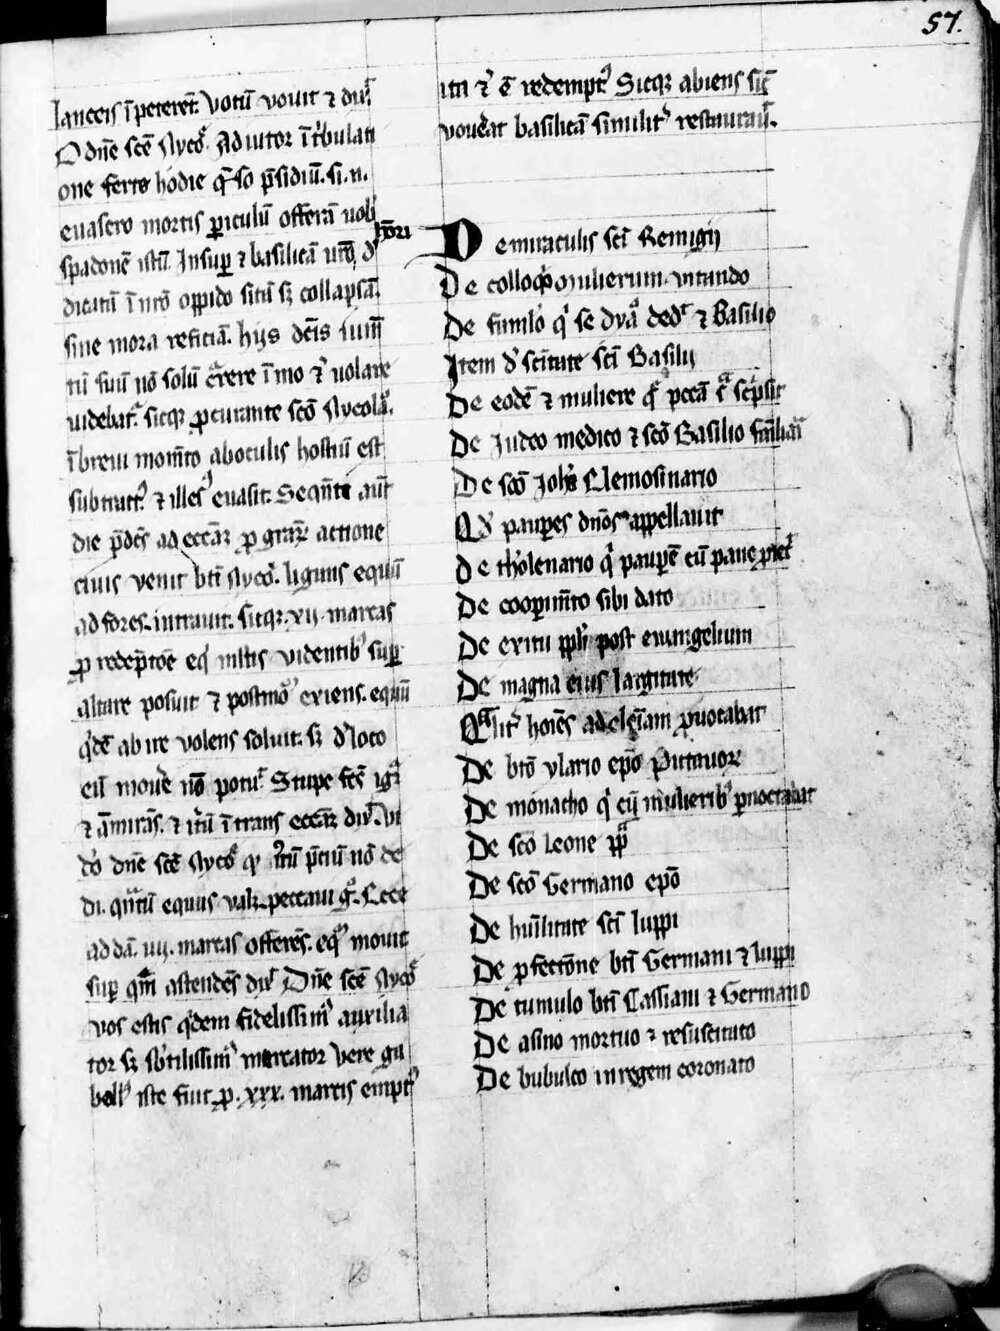 57.
lanceis īpeteret᷒. Votū vouit ⁊ dix̄
O dn̄e sc̄e Nyco. Adiutor ī t̓bulati
one ferto hodie q̄so p̄sidiū. si. n.
euasero mortis piculū offerā uob̓
spadonē istū. Insuꝑ ⁊ basilicā ur̄o
honori
dicatā ī nr̄o oppido sitū sꝫ collapsā
sine mora reficiā. hijs dc̄is
suū nō solū c̄rere īmo ⁊ uolare
uidebat᷒. sicqꝫ ꝓcurante sc̄o Nycola.
ībreui mom̄to aboculis hostiū est
subtract᷒ ⁊ illes᷒ euasit. Seqn̄te aūt
die ad ecc̄aꝫ ꝓ gr̄aꝝ actione
ciuis venit bt̄i Nyco. ligans equū
ad fores. intrauit. sicqꝫ. xij. marcas
ꝓ redēptōe eq̓ videntib᷒ suꝑ
altare posuit ⁊ postmō exiens. equū
abire volens soluit. sꝫ d̓ loco
eū mouē nō potuᷓ. Stupe
⁊
dn̄e sc̄e Nyco
di. quātū equus valꝫ. peccaui g̊. Ecce
addā. iiij. marcas offerēs.
suꝑ astendēs dix̄ Dn̄e sc̄e Nyco
vos estis q̓dem fidelissim᷒ auxilia
tor sꝫ sb̓tilissim᷒ mercator Vere ga
bell᷒ iste fuit ꝓ. xxx. marcis empt᷒
ita ⁊ ē redempt᷒ Sicqꝫ abiens sic̄
vouēat basilicā similit̓ restaurauᷓ.
De miraculis sc̄i Remigij
De colloq̓o mulierum vitando
De famlo q̓ se dyā dedᷓ ⁊ Basilio
Item d̓ scītate sc̄i Basilij
De eodē ⁊ muliere q̄ pccā
De Judeo medico ⁊ sc̄o Basilio
De sc̄o Joh̓e Elemosinario
Qd̓ paupes dn̄os appellauit
De tholenario q̓ paupē cū pane
De coopim̄to sibi dato
De exitu ppl̓i post euangelium
De magna eius largitate
Qᷓlit̓ hoīes ad ecl̄iam ꝓuocabat
De bt̄o ylario ep̄o Pictauoꝝ
De monacho q̓ cū mulierib᷒ pnoctabat
De sc̄o Leone pp̄
De sc̄o Germano ep̄o
De hu̓ilitate sc̄i luppi
De ꝓfectōne bt̄i Germani ⁊ luppi
De tumulo bt̄i Cassiani ⁊ Germano
De asino mortuo ⁊ resuscitato
De bubulco in regem coronato